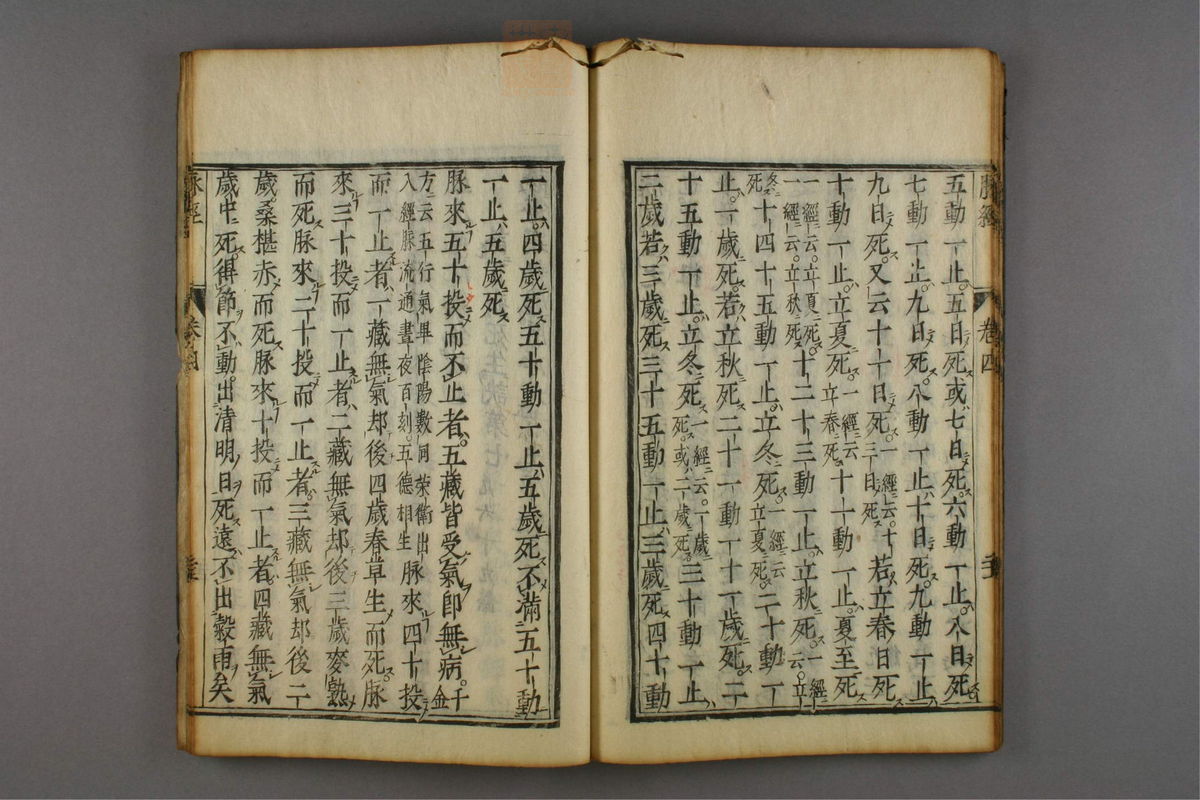 脉經　卷四
五動一止五日死或七日死六動一止八日死
七動一止九日死八動一止十日死九動一止
九日死又云十一日死一經云十三日死若立春日死
十動一止立夏死一經云立春死十一動一止夏至死
一經云立夏死一經云立秋死十二十三動一止立秋死一經云立
冬死十四十五動一止立冬死一經云立夏死二十動一
止一歲死若立秋死二十一動一止二歲死二
十五動一止立冬死一經云一歲死或二歲死三十動一止
二歲若三歲死三十五動一止三歲死四十動
一止四歲死五十動一止五歲死不滿五十動
一止五歲死
脉來五十投而不止者五藏皆受氣即無病千金
方云五行氣畢陰陽數同榮衛出入經脉流通晝夜百刻五德相生脉來四十投
而一止者一藏無氣却後四歲春草生而死脉
來三十投而一止者二藏無氣却後三歲麥熟
而死脉來二十投而一止者三藏無氣却後二
歲桑椹赤而死脉來十投而一止者四藏無氣
歲中死得節不動出清明日死遠不出穀雨矣
脉經　卷四